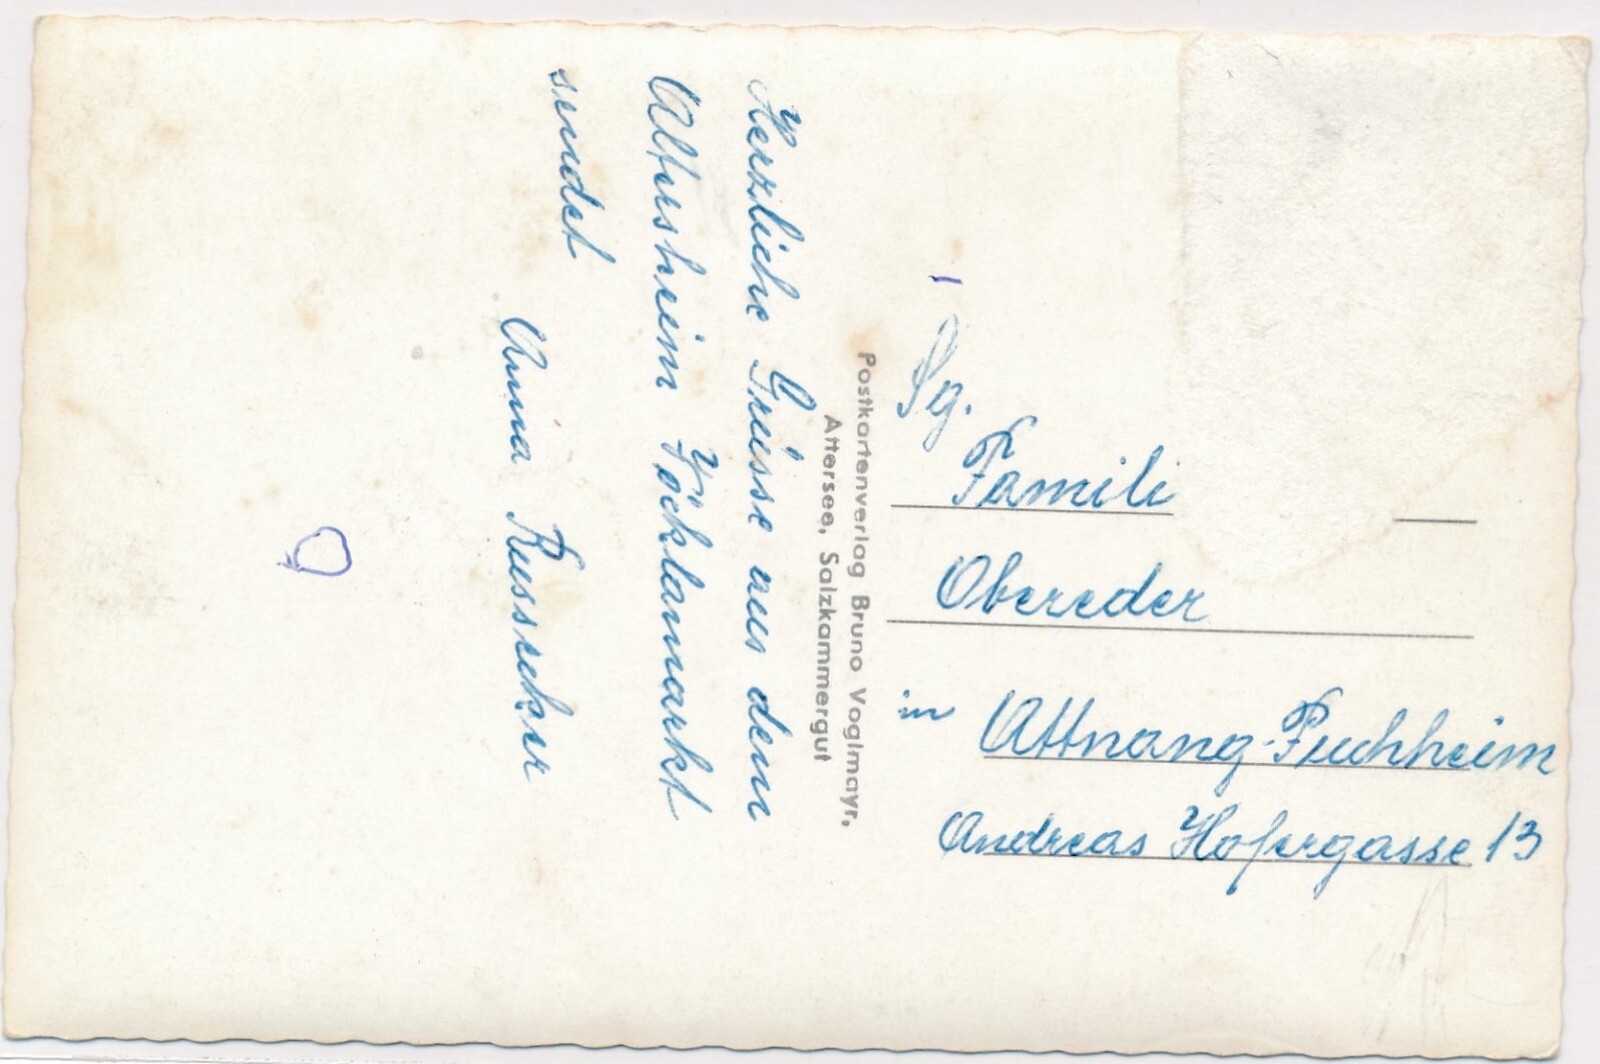 Herzliche Grüsse aus dem
Altersheim Vöcklamarkt
sendet
Anna Russecker
Postkartenverlag Bruno Voglmayr,
Attersee, Salzkammergut
Sg.
Famili
Obereder
in Attnang-Puchheim
Andreas Hofergasse 13